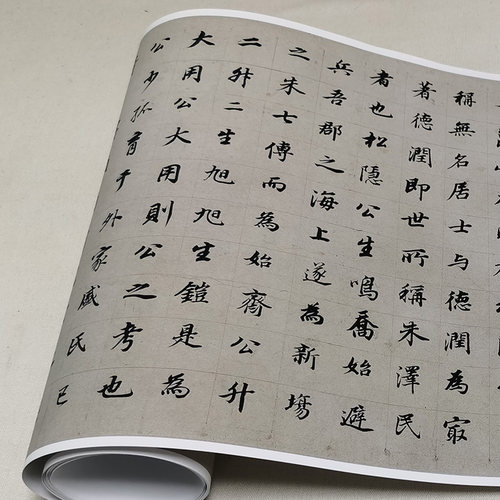 稱無名居士与德潤為㝡
著德潤即世所稱朱澤民
者也松隱公生鳴喬始避
兵吾郡之海上遂為新塲
之朱七傳而為始齋公升
二升二生旭旭生鎧是為
大用公大用則公之考也
公少孤育于外家戚氏已